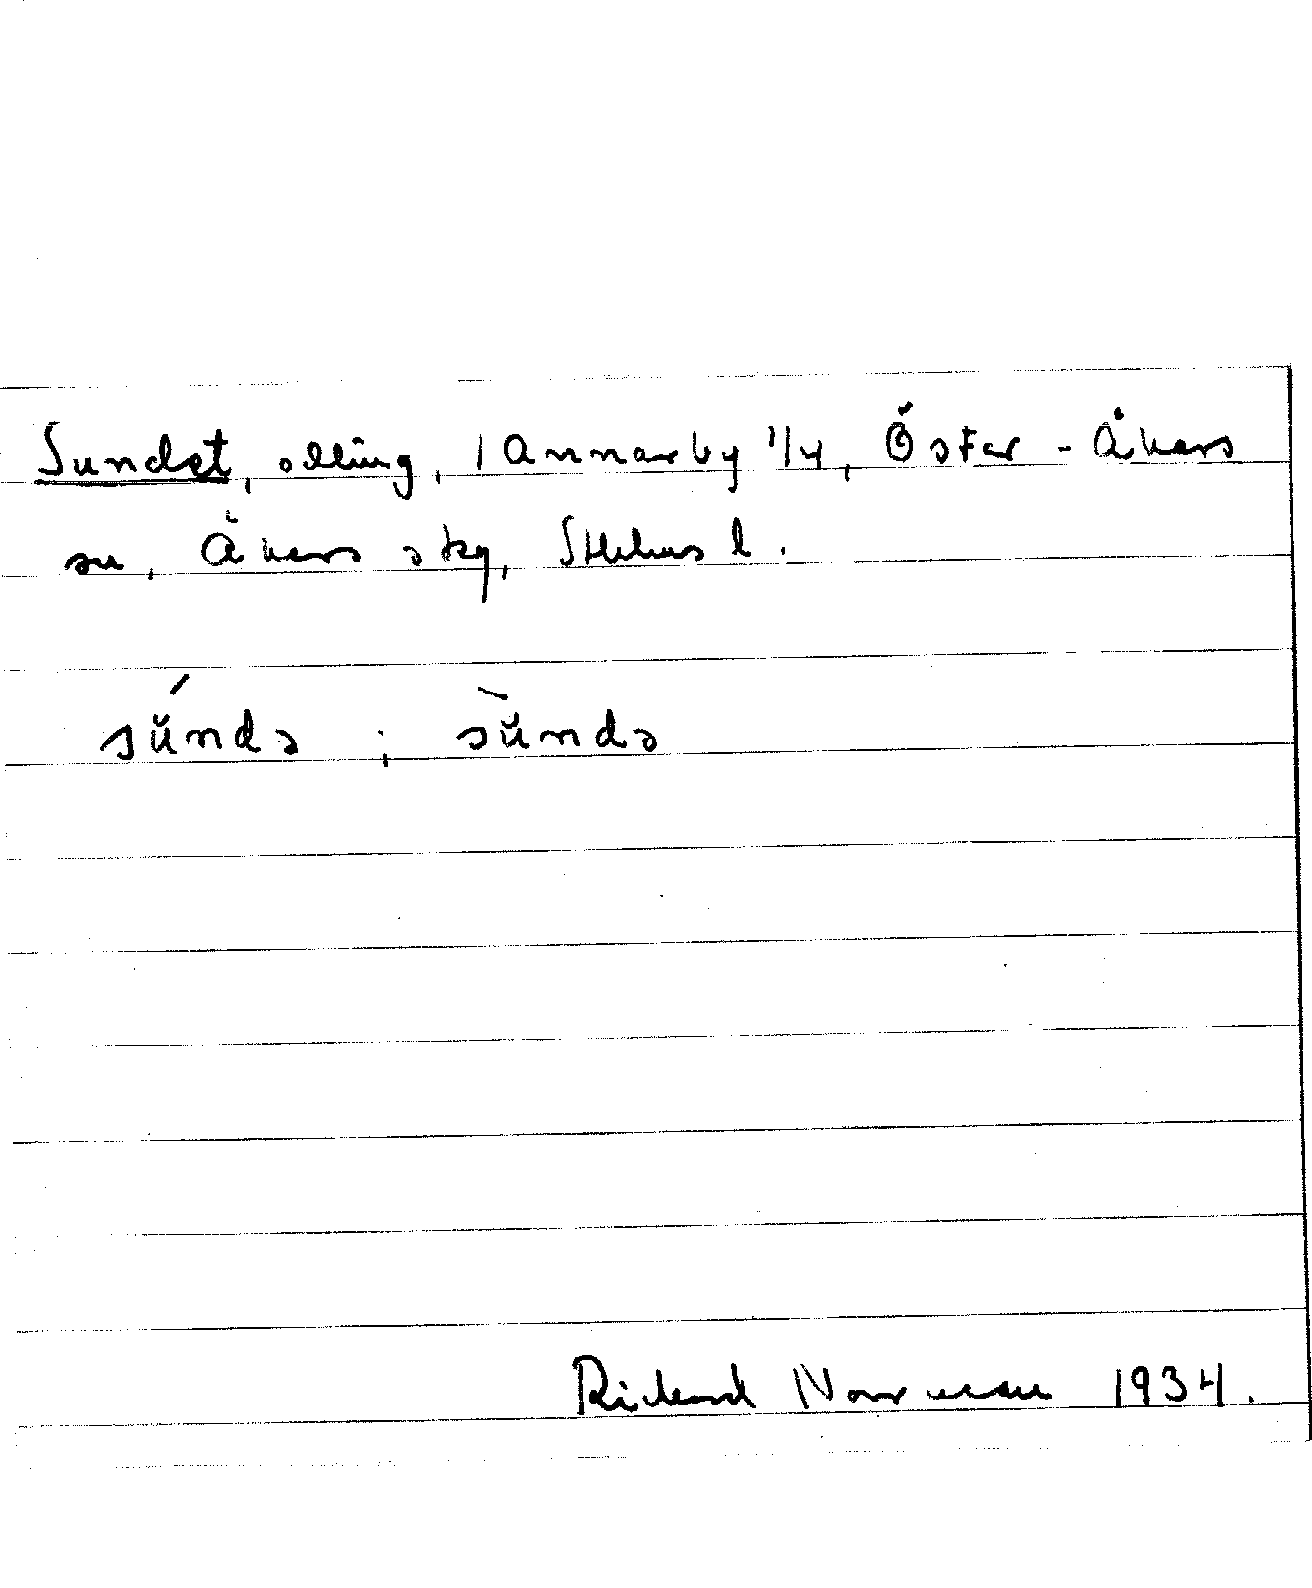 Sundet, odling, i Annarby 1/4, Öster-Åkers
sn, Åkers skg, Sthlms l.
sŭ́ndə ; sŭ̀ndə
Rickard Norrman 1934.